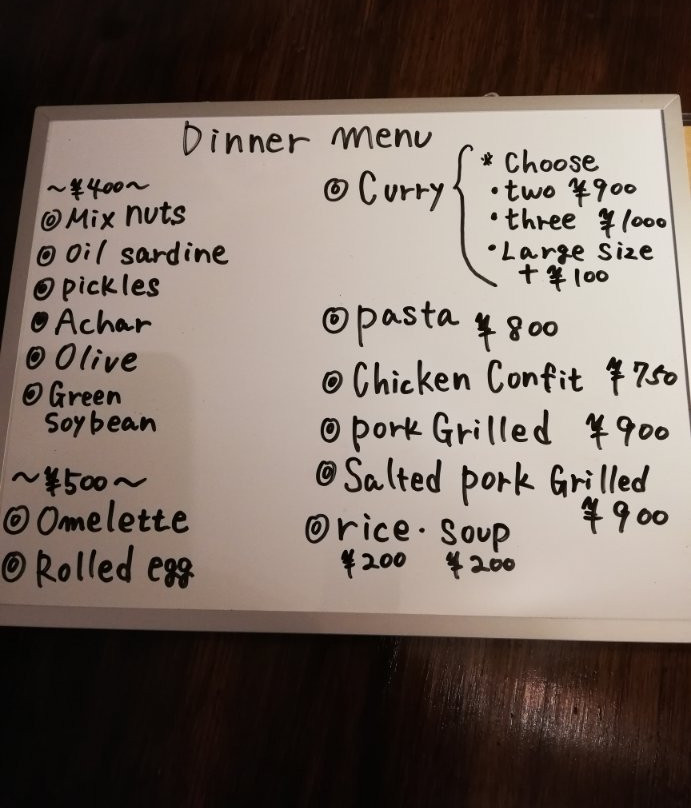 Dinner menu
~¥400~
◎ Mix nuts
◎ Oil sardine
◎ pickles
◎ Achar
◎ Olive
◎ Green
Soybean
~¥500~
◎ Omelette
◎ Rolled egg
◎ Curry
* Choose
・two ¥900
・three ¥1000
・Large size
+ ¥100
◎ pasta ¥800
◎ Chicken Confit ¥750
◎ pork Grilled ¥900
◎ Salted pork Grilled
¥900
◎ rice・soup
¥200 ¥200